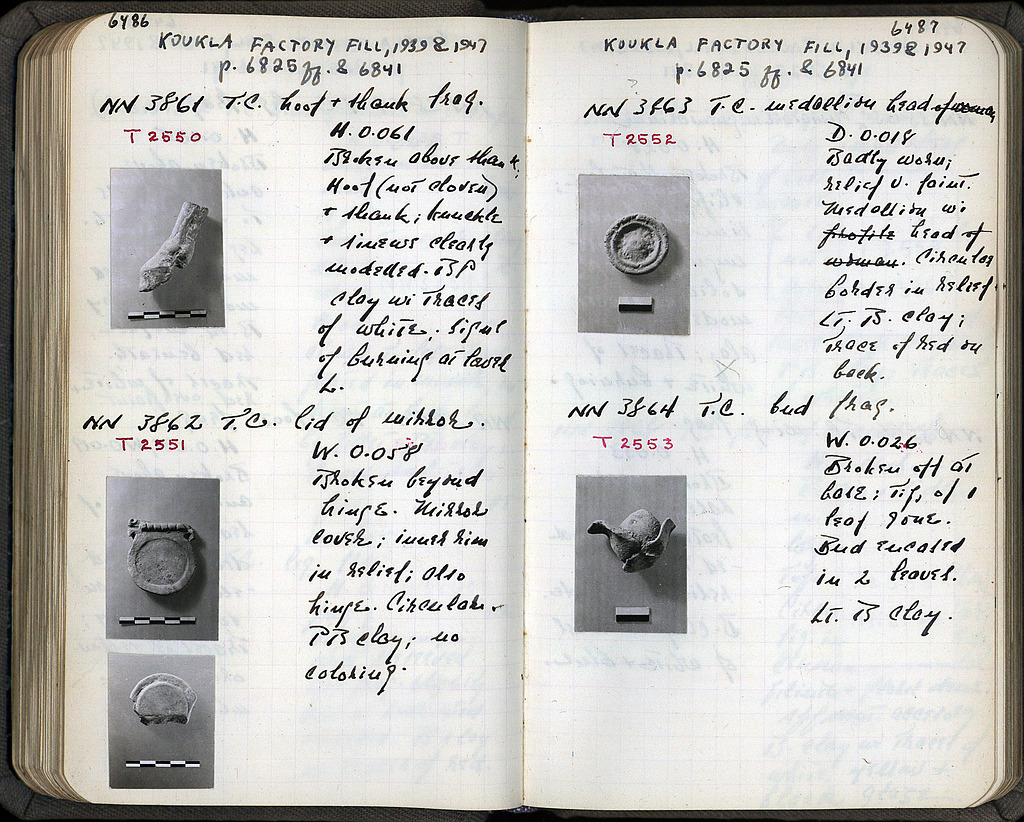 6486
KOUKLA FACTORY FILL, 1939 & 1947
p. 6825 ff. & 6841
NN 3861 T.C. hoof + shank frag.
T 2550
H. 0.061
Broken above shank;
Hoof (not cloven)
+ shank; knuckle
+ sinews clearly
modeded. BP
clay wi traces
of white. Signs
of burning at lower
L.
NN 3862 T.C. lid of mirror.
T 2551
W. 0.058
Broken beyond
hinge. Mirror
cover; inner rim
in relief; also
hinge. Circular.
PB clay; no
coloring.
6487
KOUKLA FACTORY FILL, 1939 & 1947
p. 6825 ff. & 6841
NN 3863 T.C. medallion head of woman
T 2552
D. 0.018
Badly worn;
relief v. faint.
Medallion wi
profile head of
woman. Circular
border in relief.
Lt. B. clay;
Trace of red on
back.
NN 3864 T.C. bud frag.
T 2553
W. 0.026
Broken off at
base; tip of 1
leaf gone.
Bud encased
in 2 leaves.
Lt. B clay.